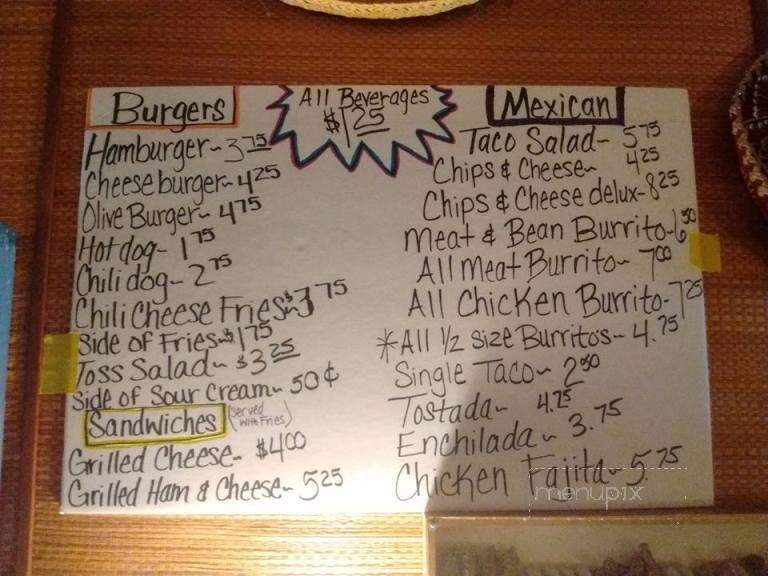 Burgers
Hamburger~ 3 75
Cheeseburger~ 4 25
Olive Burger~ 4 75
Hotdog~ 1 75
Chili dog~ 2 75
Chili Cheese Fries~ $3 75
Side of Fries~ $1 75
Toss Salad~ $3 25
Side of Sour Cream~ 50¢
Sandwiches (served with Fries)
Grilled Cheese~ $4 00
Grilled Ham & Cheese~ 5 25
All Beverages
$1 25
Mexican
Taco Salad~ 5 75
Chips & Cheese~ 4 25
Chips & Cheese delux~ 8 25
Meat & Bean Burrito~ 6 50
All Meat Burrito~ 7 00
All Chicken Burrito~ 7 25
*All 1/2 size Burrito's~ 4.75
Single Taco~ 2 50
Tostada~ 4.25
Enchilada~ 3.75
Chicken Fajita~ 5.75
menupix